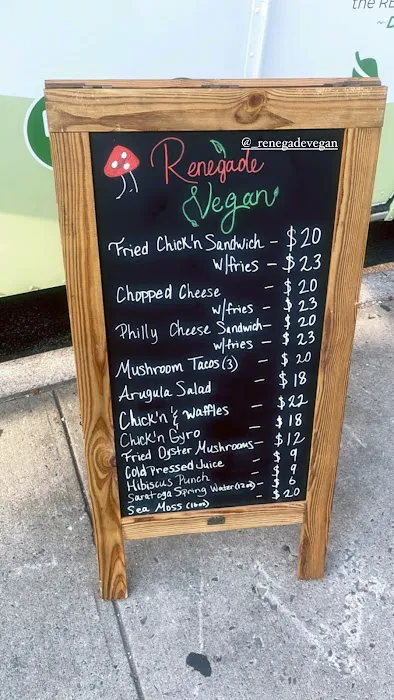 the RE
@_renegadevegan
Renegade
Vegan
Fried Chick'n Sandwich - $20
w/fries - $23
Chopped Cheese - $20
w/fries - $23
Philly Cheese Sandwich - $20
w/fries - $23
Mushroom Tacos (3) - $20
Arugula Salad - $18
Chick'n & Waffles - $22
Chick'n Gyro - $18
Fried Oyster Mushrooms - $12
Cold Pressed Juice - $9
Hibiscus Punch - $9
Saratoga Spring Water (12oz) - $6
Sea Moss (16oz) - $20